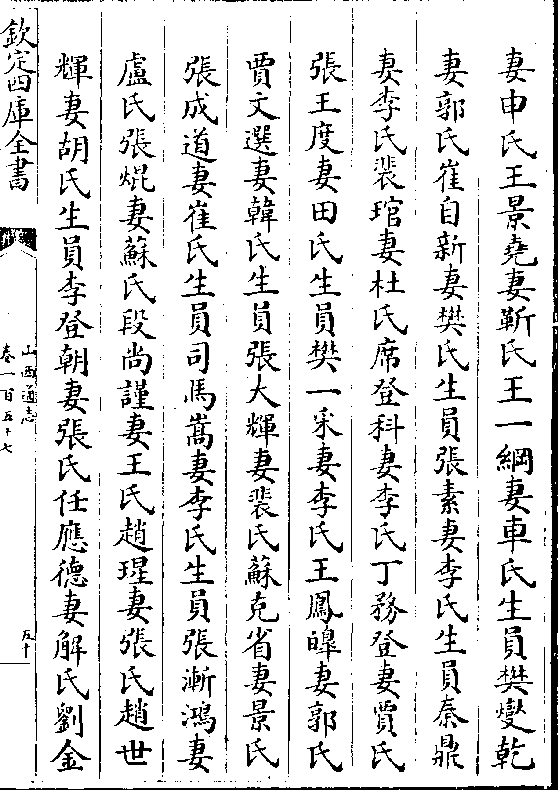 妻申氏王景堯妻靳氏王一綱妻車氏生員樊爕乾
妻郭氏崔自新妻樊氏生員張素妻李氏生員秦鼎
妻李氏裴琯妻杜氏席登科妻李氏丁務登妻賈氏
張王度妻田氏生員樊一采妻李氏王鳳皥妻郭氏
賈文選妻韓氏生員張大輝妻裴氏蘇克省妻景氏
張成道妻崔氏生員司馬嵩妻李氏生員張漸鴻妻
盧氏張焜妻蘇氏段尚謹妻王氏趙瑆妻張氏趙世
輝妻胡氏生員李登朝妻張氏任應德妻解氏劉金
欽定四庫全書
山西通志
卷一百五十七
五十